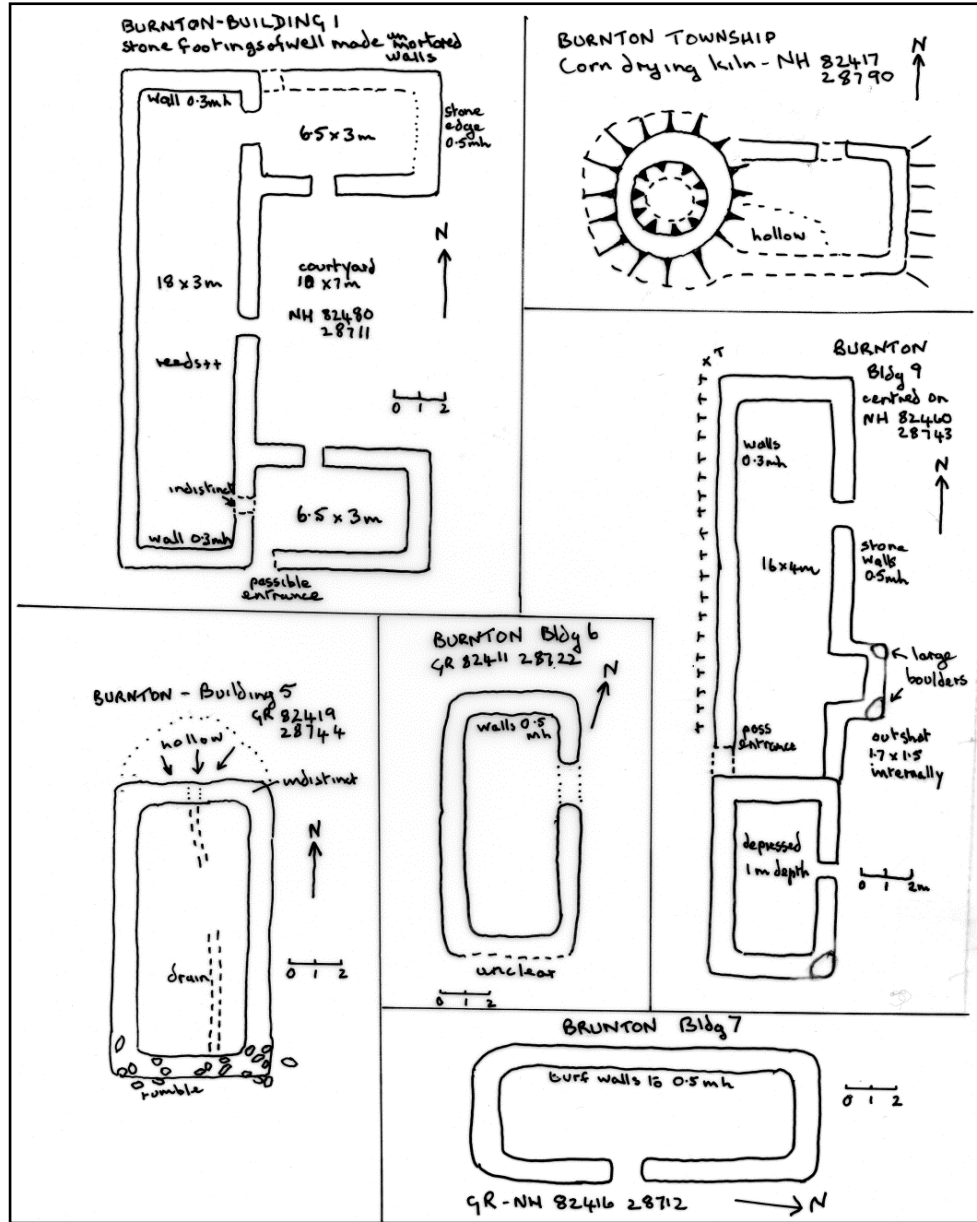 BURNTON-BUILDING 1
stone footings of well made un mortored
walls
wall 0.3mh
6.5 x 3m
stone
edge
0.5mh
N
18 x 3m
courtyard
10 x 7m
NH 82480
28711
reeds++
0 1 2
indistinct
6.5 x 3m
wall 0.3mh
possible
entrance
BURNTON TOWNSHIP
Corn drying kiln - NH 82417
28790
N
hollow
BURNTON
Bldg 9
centred on
NH 82460
28743
N
walls
0.3mh
16x4m
stone
walls
0.5mh
large
boulders
poss
entrance
outshot
1.7 x 1.5
internally
depressed
1m depth
0 1 2m
BURNTON - Building 5
GR 82419
28744
hollow
indistinct
N
drain
0 1 2
rumble
BURNTON Bldg 6
GR 82411 28722
N
walls 0.5
mh
unclear
0 1 2
BRUNTON Bldg 7
turf walls to 0.5mh
0 1 2
GR-NH 82416 28712
N